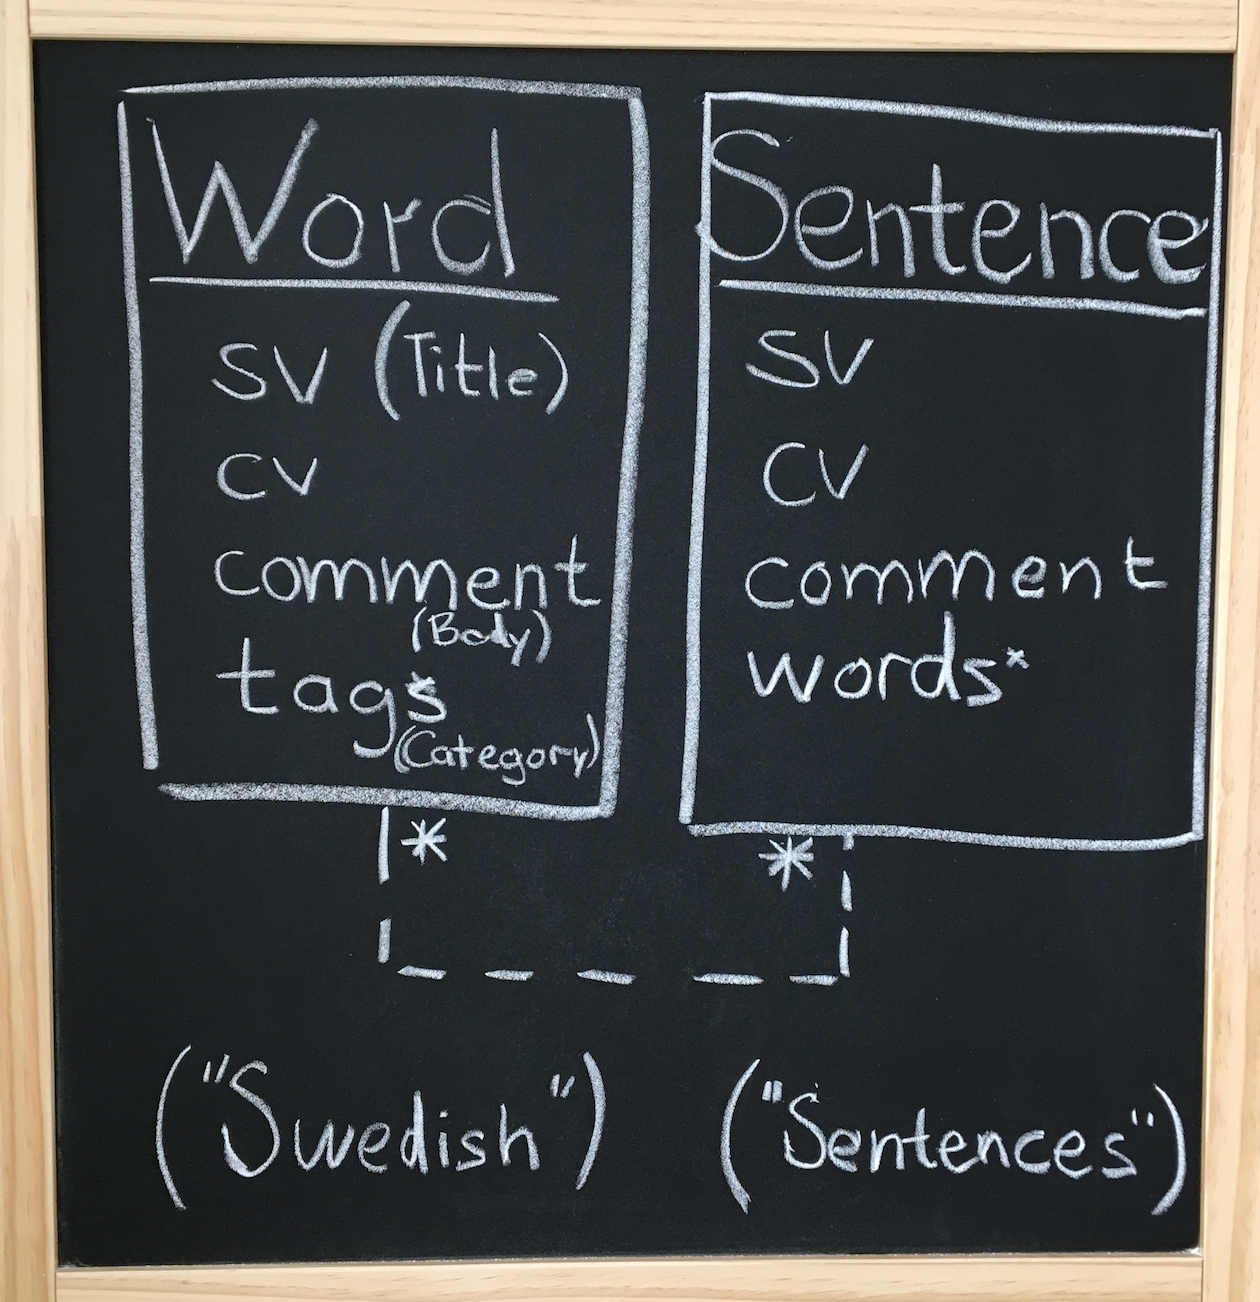 Word
sv (Title)
cv
comment
(Body)
tags*
(Category)
*
("Swedish")
Sentence
sv
cv
comment
words*
*
("Sentences")